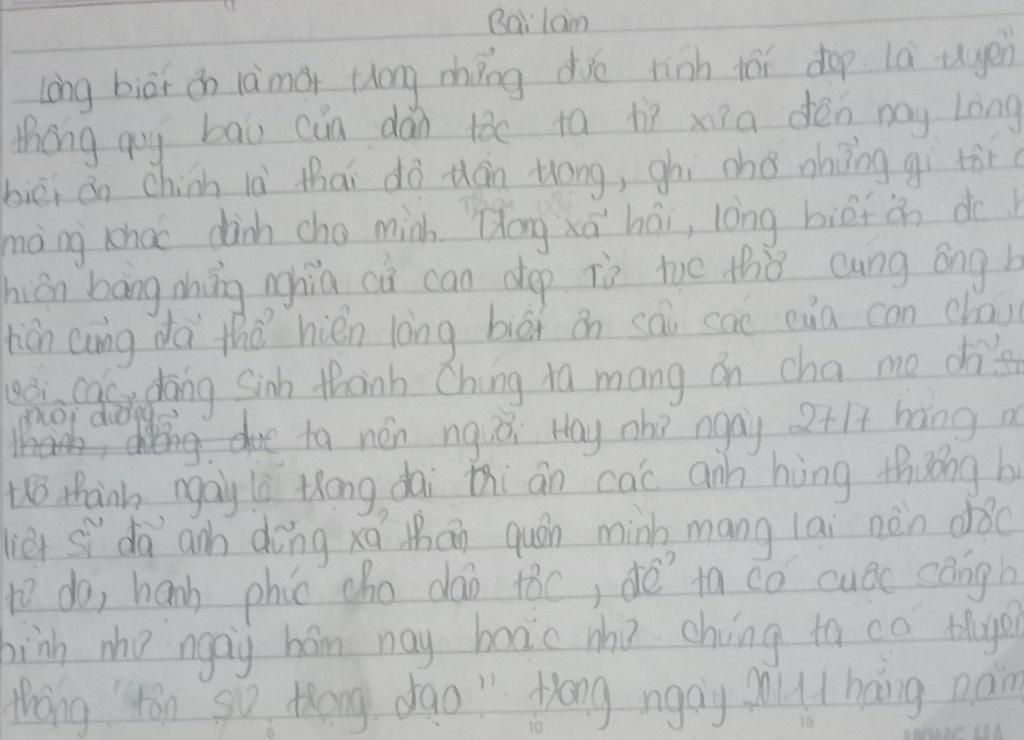 Bài làm
Lòng biết ơn là một trong những đức tính tốt đẹp là truyền
thống quý báu của dân tộc ta từ xưa đến nay. Lòng
biết ơn chính là thái độ trân trọng, ghi nhớ những gì tốt
mà ng khác dành cho mình. Trong xã hội, lòng biết ơn đc
hiện bằng những nghĩa cử cao đẹp. Từ tục thờ cúng ông b
tiên cũng đã thể hiện lòng biết ơn sâu sắc của con cháu
với các đấng sinh thành. Chúng ta mang ơn cha mẹ đã
nuôi dưỡng
ta nên người. Hay như ngày 27/7 hàng n
trở thành ngày lễ trọng đại tri ân các anh hùng thương bi
liệt sĩ đã anh dũng xả thân quên mình mang lại nền độc
tự do, hạnh phúc cho dân tộc, để ta có cuộc sống h
bình như ngày hôm nay hoặc như chúng ta có truyền
thống "tôn sư trọng đạo" trong ngày 20/11 hằng năm